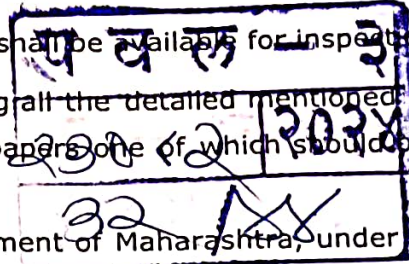 shall be available for inspect
प व ल – ३
all the detailed mentioned
papers one of which should
२०२४
ment of Maharashtra, under